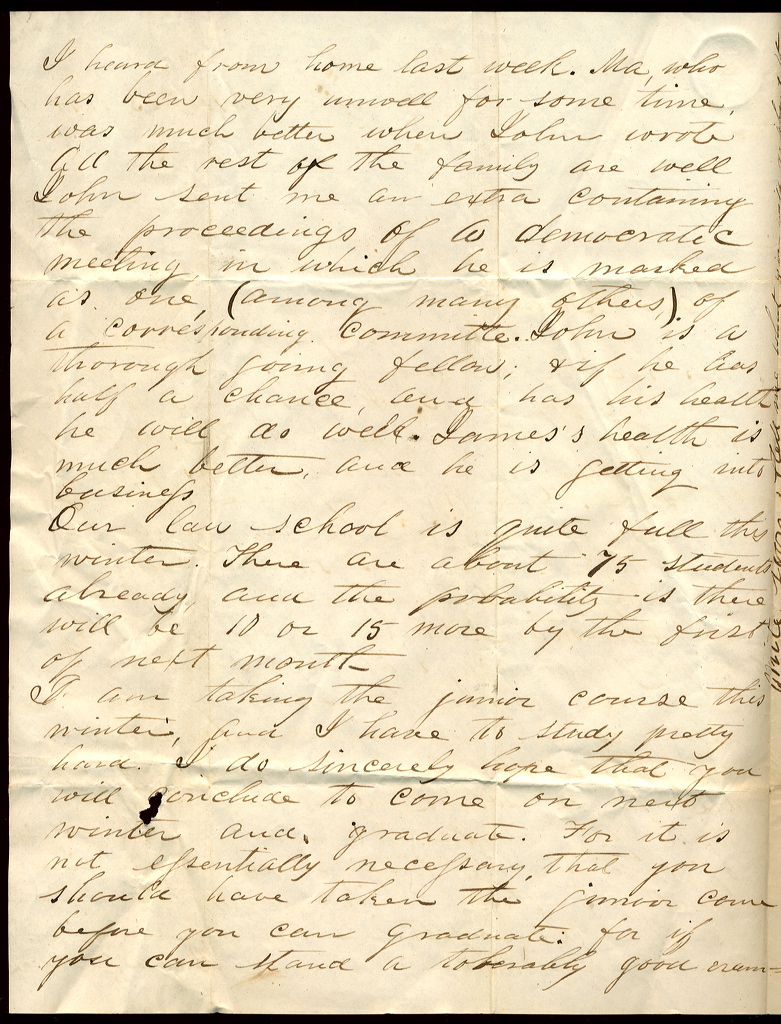 I heard from home last week. Ma, who
has been very unwell for some time,
was much better when John wrote
All the rest of the family are well
John sent me an extra containing
the proceedings of a democratic
meeting, in which he is marked
as one, (among many others) of
a corresponding Committe. John is a
thorough going fellow; & if he has
half a chance, and has his health
he will do well. James's health is
much better, and he is getting into
business
Our law school is quite full this
winter. There are about 75 students
already, and the probability is there
will be 10 or 15 more by the first
of next month
I am taking the junior course this
winter, and I have to study pretty
hard. I do sincerely hope that you
will conclude to come on next
winter and graduate. For it is
not essentially necessary, that you
should have taken the junior
before you can graduate: for if
you can stand a tolerably good exam=